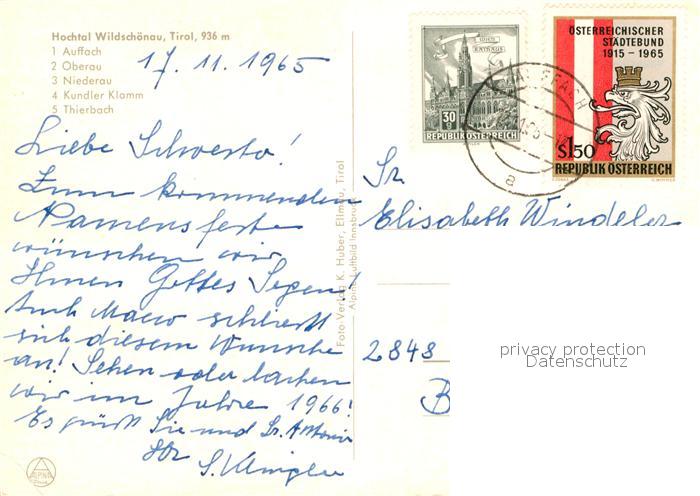 Hochtal Wildschönau, Tirol, 936 m
1 Auffach
2 Oberau
3 Niederau
4 Kundler Klamm
5 Thierbach
17. 11. 1965
Liebe Schwester!
Zum kommenden
Namensfeste
wünschen wir
Ihnen Gottes Segen!
Auch Maew schliesst
sich diesem Wunsche
an! Sehen oder lachen
wir im Jahre 1966!
Es grüßt Sie und Sr. Antonie
Ihr
S. Klingler
Foto-Verlag K. Huber, Ellmau, Tirol
Alpine Luftbild Innsbruck
WIEN
RATHAUS
30
REPUBLIK ÖSTERREICH
ÖSTERREICHISCHER
STÄDTEBUND
1915 - 1965
S 1.50
REPUBLIK ÖSTERREICH
AUFFACH
a
Sr.
Elisabeth Windeler
2848
B
privacy protection
Datenschutz
ALPINE